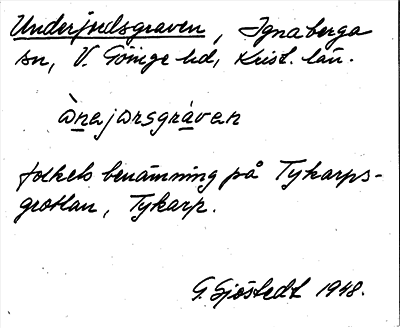 Underjordsgraven, Ignaberga
sn, V. Göinge hd, Krist. län.
ònejorsgràven
folkets benämning på Tykarps-
grottan, Tykarp.
G. Sjöstedt 1948.